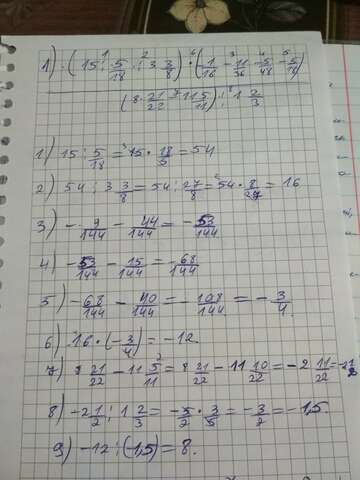 1) (15 : 5/18 : 3 3/8) · (-1/16 - 11/36 - 5/48 - 5/18)
(8 21/22 - 11 5/11) : 1 2/3
1) 15 : 5/18 = 15 · 18/5 = 54
2) 54 : 3 3/8 = 54 : 27/8 = 54 · 8/27 = 16
3) -9/144 - 44/144 = -53/144
4) -53/144 - 15/144 = -68/144
5) -68/144 - 40/144 = -108/144 = -3/4.
6) 16 · (-3/4) = -12.
7) 8 21/22 - 11 5/11 = 8 21/22 - 11 10/22 = -2 11/22 = -2 1/2
8) -2 1/2 : 1 2/3 = -5/2 · 3/5 = -3/2 = -1,5.
9) -12 : (-1,5) = 8.